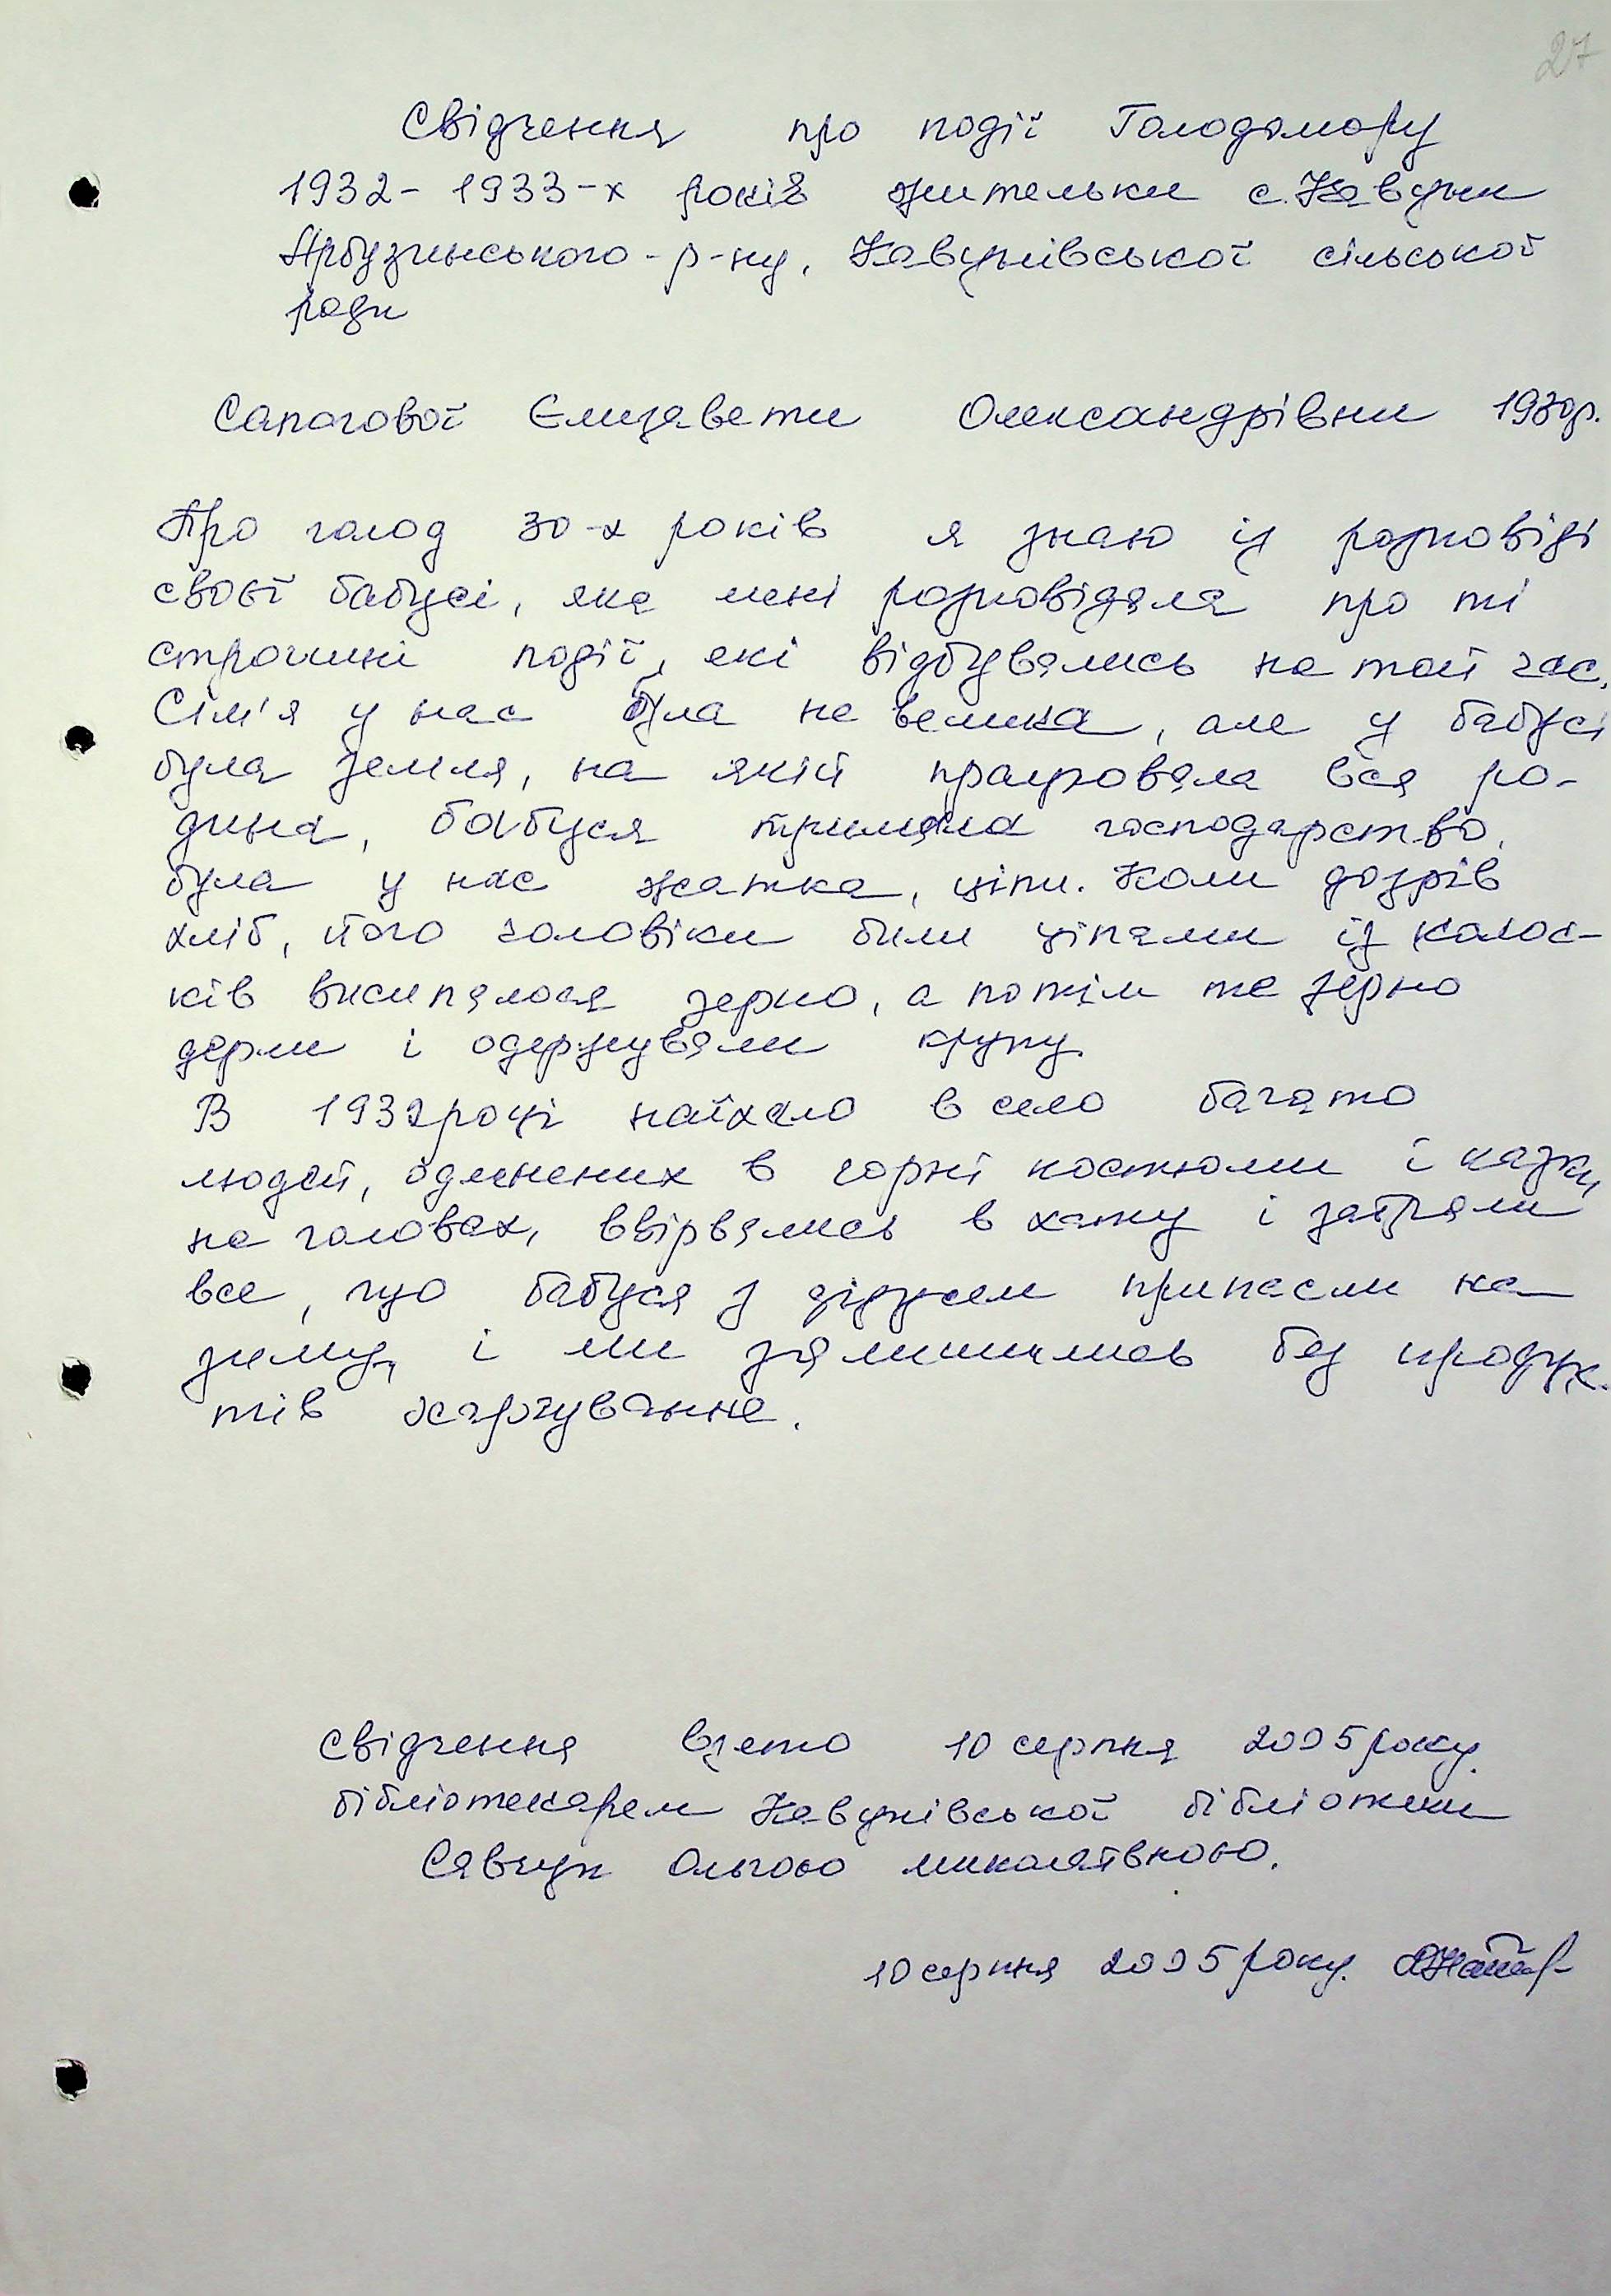 27
Свідчення про події Голодомору
1932-1933-х років жительки с. Кавуни
Арбузинського р-ну, Кавунівської сільської
ради
Сапогової Єлизавети Олександрівни 1930р.
Про голод 30-х років я знаю із розповіді
своєї бабусі, яка мені розповідала про ті
строшні події, які відбувались на той час.
Сім'я у нас була не велика, але у бабусі
була земля, на якій працювала вся ро-
дина, бабуся тримала господарство,
була у нас жатка, ціпи. Коли дозрів
хліб, його чоловіки били ціпами із колос-
ків висипалося зерно, а потім те зерно
дерли і одержували крупу.
В 1932 році наїхало в село багато
людей, одягнених в чорні костюми і
на головах, ввірвались в хату і забрали
все, що бабуся з дідусем припасли на
зиму, і ми залишились без продук-
тів харчування.
Свідчення взято 10 серпня 2005 року.
бібліотекарем Кавунівської бібліотеки
Савчук Ольгою миколаївною.
10 серпня 2005 року.